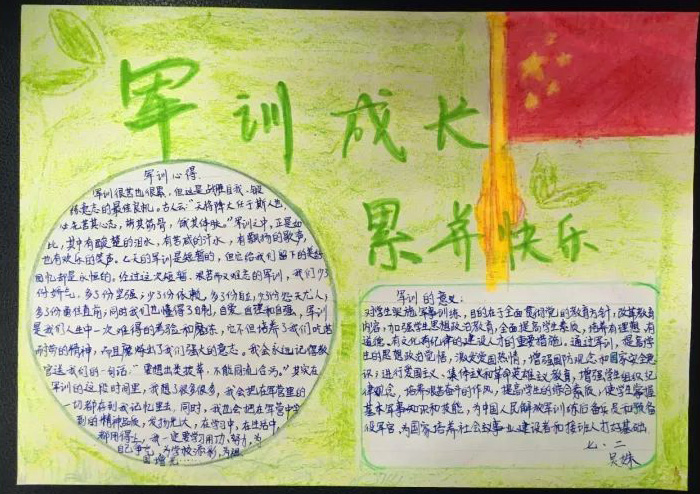 军训成长
累并快乐
军训心得
军训很苦也很累,但这是战胜自我、锻
炼意志的最佳良机。古人云:“天将降大任于斯人也,
必先苦其心志,断其筋骨,饿其体肤。”军训之中,正是如
此,其中有酸楚的泪水,有苦咸的汗水,有飘扬的歌声,
也有欢乐的笑声。七天的军训是短暂的,但它给我们留下的美好
回忆却是永恒的。经过这次短暂、艰苦而又难忘的军训,我们少了
份娇气,多了份坚强;少了份依赖,多了份自立;少了份怨天尤人,
多了份勇往直前;同时我们也懂得了自制,自爱,自理和自强,军训
是我们人生中一次难得的考验和磨练,它不但培养了我们吃苦
耐劳的精神,而且磨炼出了我们强大的意志。我会永远记得教
官送我们的一句话:“要想出类拔萃,不能同流合污。”其实在
军训的这段时间里,我想了很多很多,我会把在军营里的
一切都存到我记忆里去。同时,我也会把在军营中学
到的精神品质,发扬光大,在学习中,在生活中,
都用得上,我一定要学习用功、努力,为
自己争光,为学校添彩,为祖
国增光……
军训的意义:
对学生实施军事训练,目的在于全面贯彻党的教育方针,改革教育
内容,加强学生思想政治教育,全面提高学生素质,培养有理想、有
道德、有文化有纪律的建设人才的重要措施。通过军训,提高学
生的思想政治觉悟,激发爱国热情,增强国防观念和国家安全意
识;进行爱国主义、集体主义和革命英雄主义教育,增强学生组织纪
律观念,培养艰苦奋斗的作风,提高学生的综合素质,使学生掌握
基本军事知识和技能,为中国人民解放军训练后备兵员和预备
役军官、为国家培养社会主义事业建设者和接班人打好基础。
七·二
吴姝